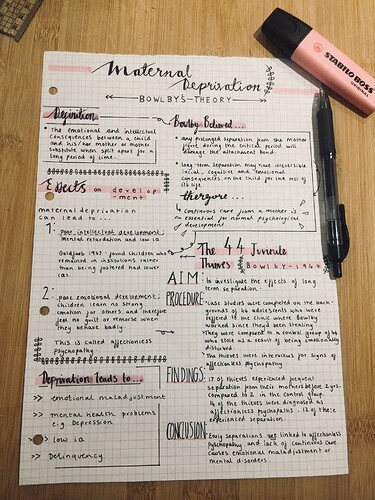 Maternal
Deprivation
BOWLBYS THEORY
Definition
• The emotional and intellectual
consequences between a child
and his/her mother or mother
substitute when split apart for a
long period of time.
Effects on develop
-ment
maternal deprivation
can lead to...
1: poor intellectual development;
Mental retardation and low iq
Goldfarb 1947 - found children who
remained in institutions rather
than being fostered had lower
iqs.
2: poor emotional development;
children learn no strong
emotion for others and therefore
feel no guilt or remorse when
they behave badly.
This is called affectionless
psychopathy
Deprivation leads to...
>> emotional maladjustment
>> mental health problems
e.g. Depression
>> low iq
>> Delinquency
Bowlby Believed...
• any prolonged separation from the mother
figure during the critical period will
damage the attachment bond.
• Long-term separation may have irreversible
social, cognitive and emotional
consequences on the child for the rest of
its life.
therefore...
Continuous care from a mother is
essential for normal psychological
development.
The 44 Juvinile
Thieves Bowlby - 1944
AIM: • to investigate the effects of long
term separation.
PROCEDURE: • case studies were completed on the back-
grounds of 44 adolescents who were
reffered to the clinic where Bowlby
worked since they'd been stealing.
• They were compared to a control group of 44
who stole as a result of being emotionally
disturbed.
• The thieves were interviews for signs of
affectionless psychopathy
FINDINGS: 17 of thieves experienced frequent
separation from their mothers before 2 yrs.
compared to 2 in the control group.
14 of the thieves were diagnosed as
affectionless psychopaths. 12 of these
experienced separation.
CONCLUSION: Early separations are linked to affectionless
psychopathy and lack of continuous care
causes emotional maladjustment or
mental disorders.
STABILO BOSS
ORIGINAL